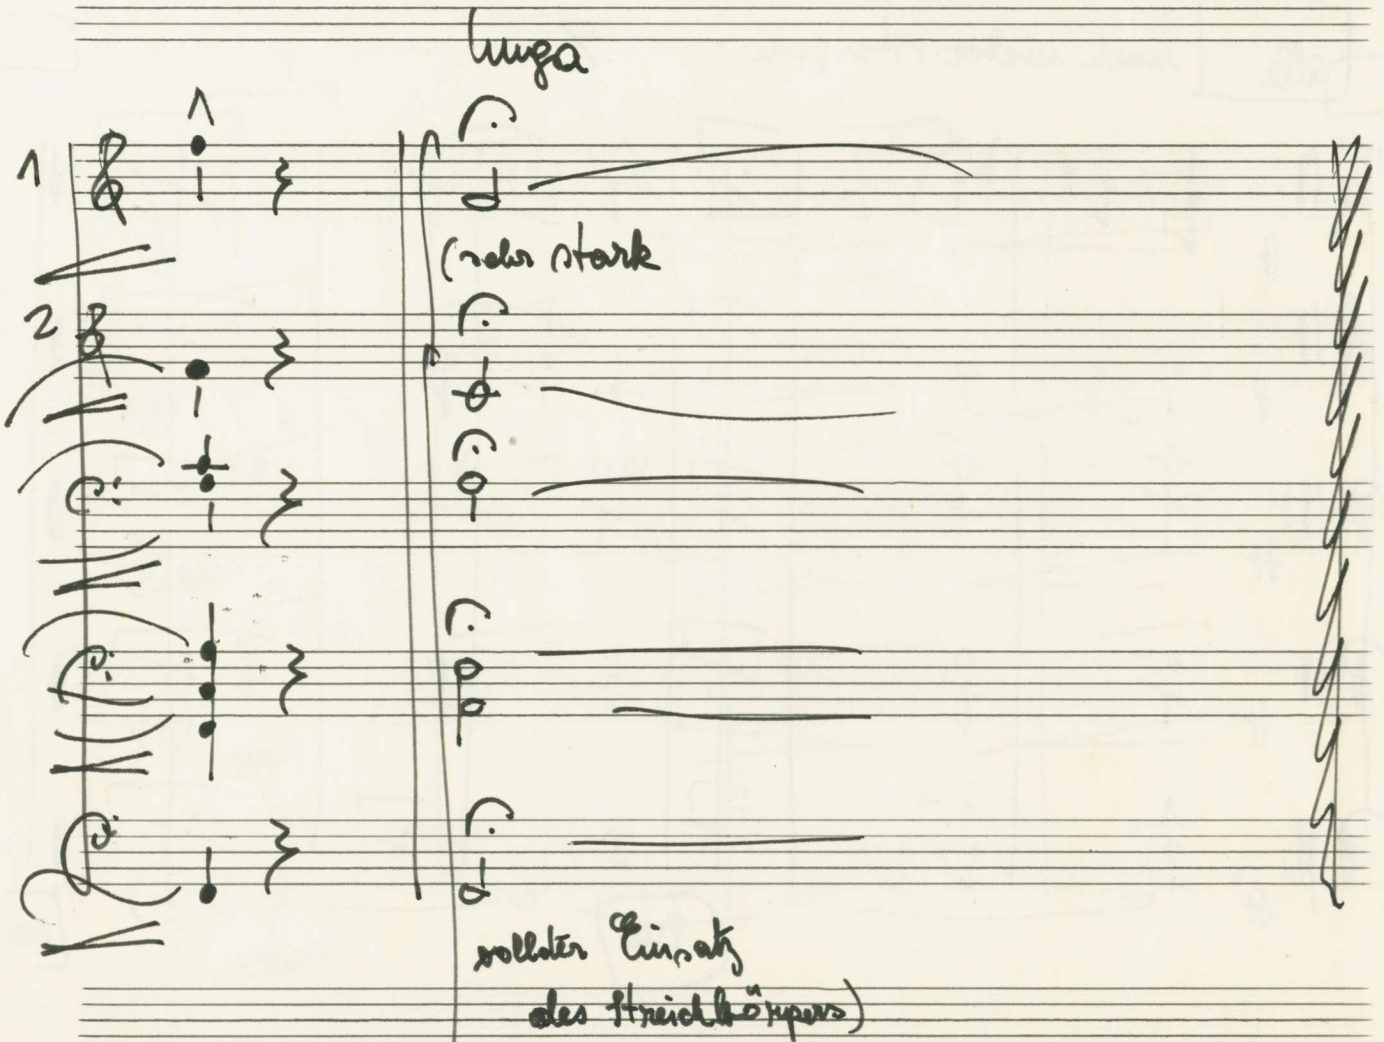 lunga
1
(sehr stark
2
Einsatz
des Streichkörpers)